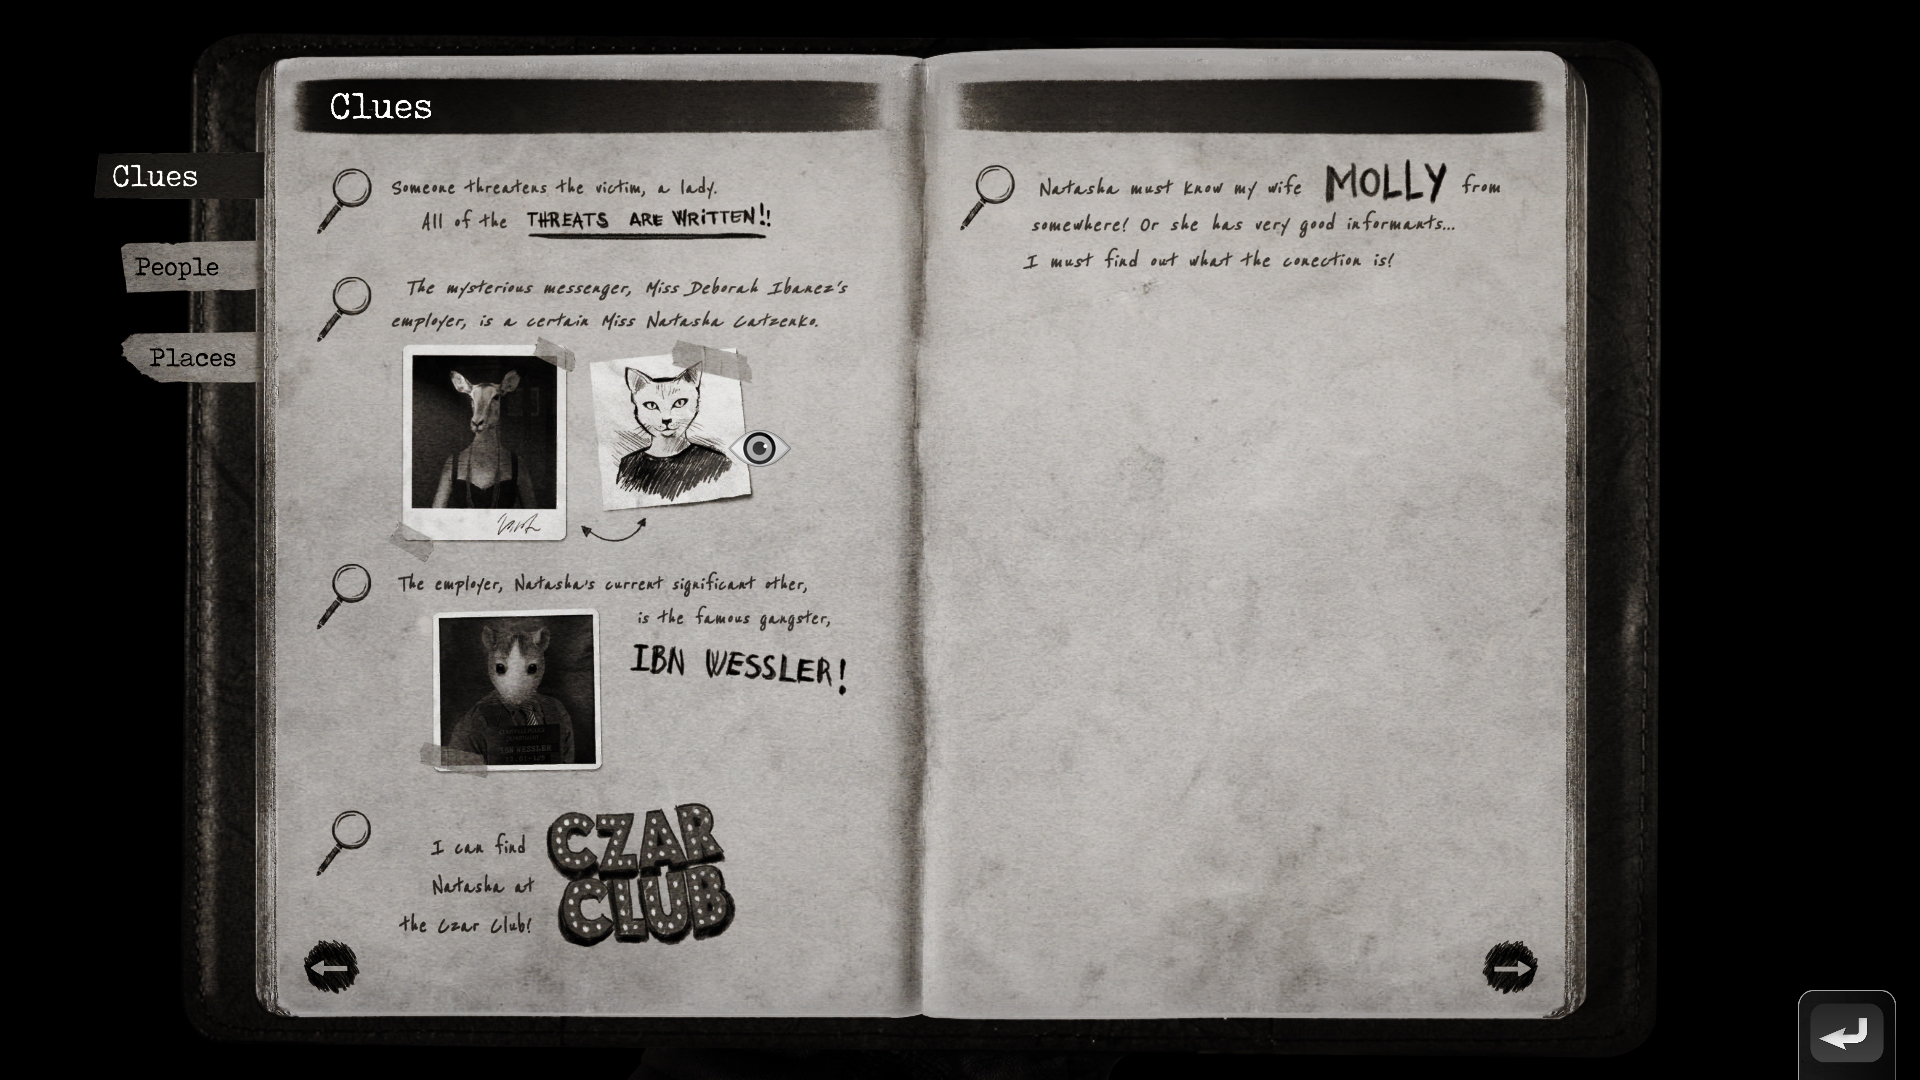 Clues
Clues
People
Places
Someone threatens the victim, a lady.
All of the THREATS ARE WRITTEN!!
The mysterious messenger, Miss Deborah Ibanez's
employer, is a certain Miss Natasha Catzenko.
The employer, Natasha's current significant other,
is the famous gangster,
IBN WESSLER!
IBN WESSLER
I can find
Natasha at
the Czar Club!
CZAR
CLUB
Natasha must know my wife MOLLY from
somewhere! Or she has very good informants...
I must find out what the conection is!